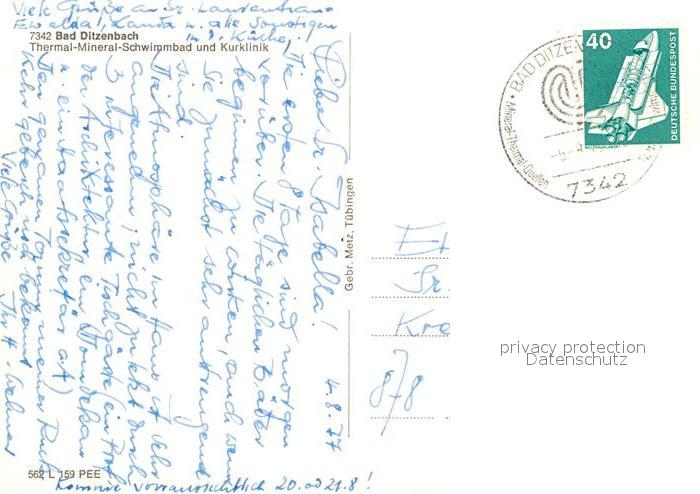 Viele Grüße an Sr. Laurentiana
Ewalda, Landa u. alle Sonstigen
in d. Küche.
7342 Bad Ditzenbach
Thermal-Mineral-Schwimmbad und Kurklinik
4.8.77
Liebe Sr. Isabella!
Die ersten 8 Tage sind morgen
vorüber. Die täglichen Bäder
beginnen zu wirken, auch wenn
Sie zunächst sehr anstrengend
sind.
Die Atmosphäre im Haus ist sehr
angenehm, nicht zuletzt durch
3 interessante Tischgäste (ein Prof.
der Architektur, ein Domdekan
u. ein Staatssekretär a.D.)
Den genauen Termin meiner Rück-
kehr gebe ich noch bekannt.
Viele Grüße Ihr
Komme voraussichtlich 20. od 21.8!
562 L 159 PEE
Gebr. Metz, Tübingen
Sr.
878
BAD DITZEN
Mineral-Thermal-Quellen
7342
40
DEUTSCHE BUNDESPOST
privacy protection
Datenschutz